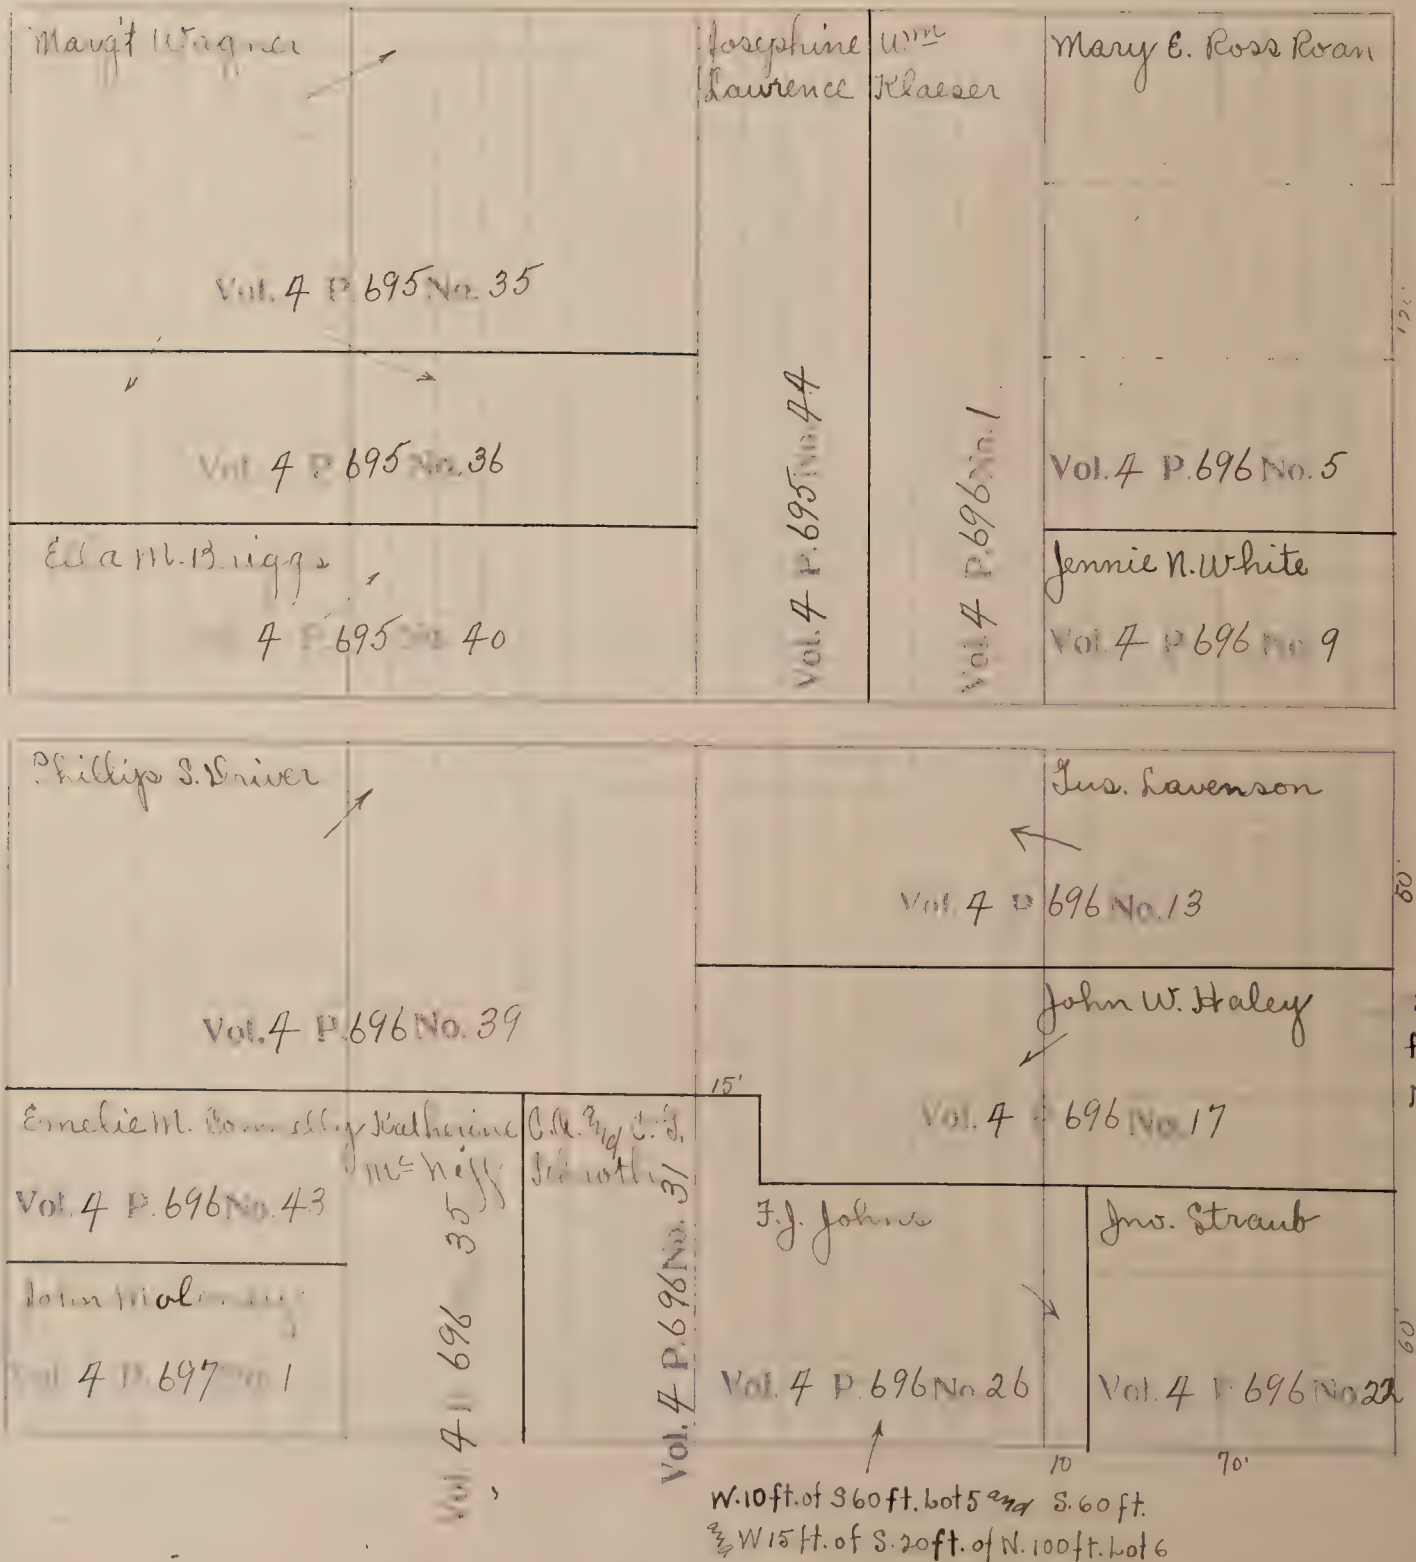 Marg't Wagner
Vol. 4 P. 695 No. 35
Vol. 4 P. 695 No. 36
M. Briggs
4 P. 695 No. 40
Josephine
Lawrence
Vol. 4 P. 695 No. 44
Wm
Klaeser
Vol. 4 P. 696 No. 1
Mary E. Ross Roan
Vol. 4 P. 696 No. 5
Jennie N. White
Vol. 4 P. 696 No. 9
Phillips S. Driver
Vol. 4 P. 696 No. 39
Gus. Lavenson
Vol. 4 P. 696 No. 13
John W. Haley
Vol. 4 P 696 No. 17
15'
Emelie M.
Vol. 4 P. 696 No. 43
John
Vol. 4 P. 697 No. 1
Katherine
Vol. 4 P 696 35
C. A. and C. J.
Vol. 4 P. 696 No. 31
F. J. Johns
Vol. 4 P. 696 No. 26
Jno. Straub
Vol. 4 P. 696 No. 22
60'
10 70'
W. 10 ft. of S 60 ft. Lot 5 and S. 60 ft.
and W 15 ft. of S. 20 ft. of N. 100 ft. Lot 6